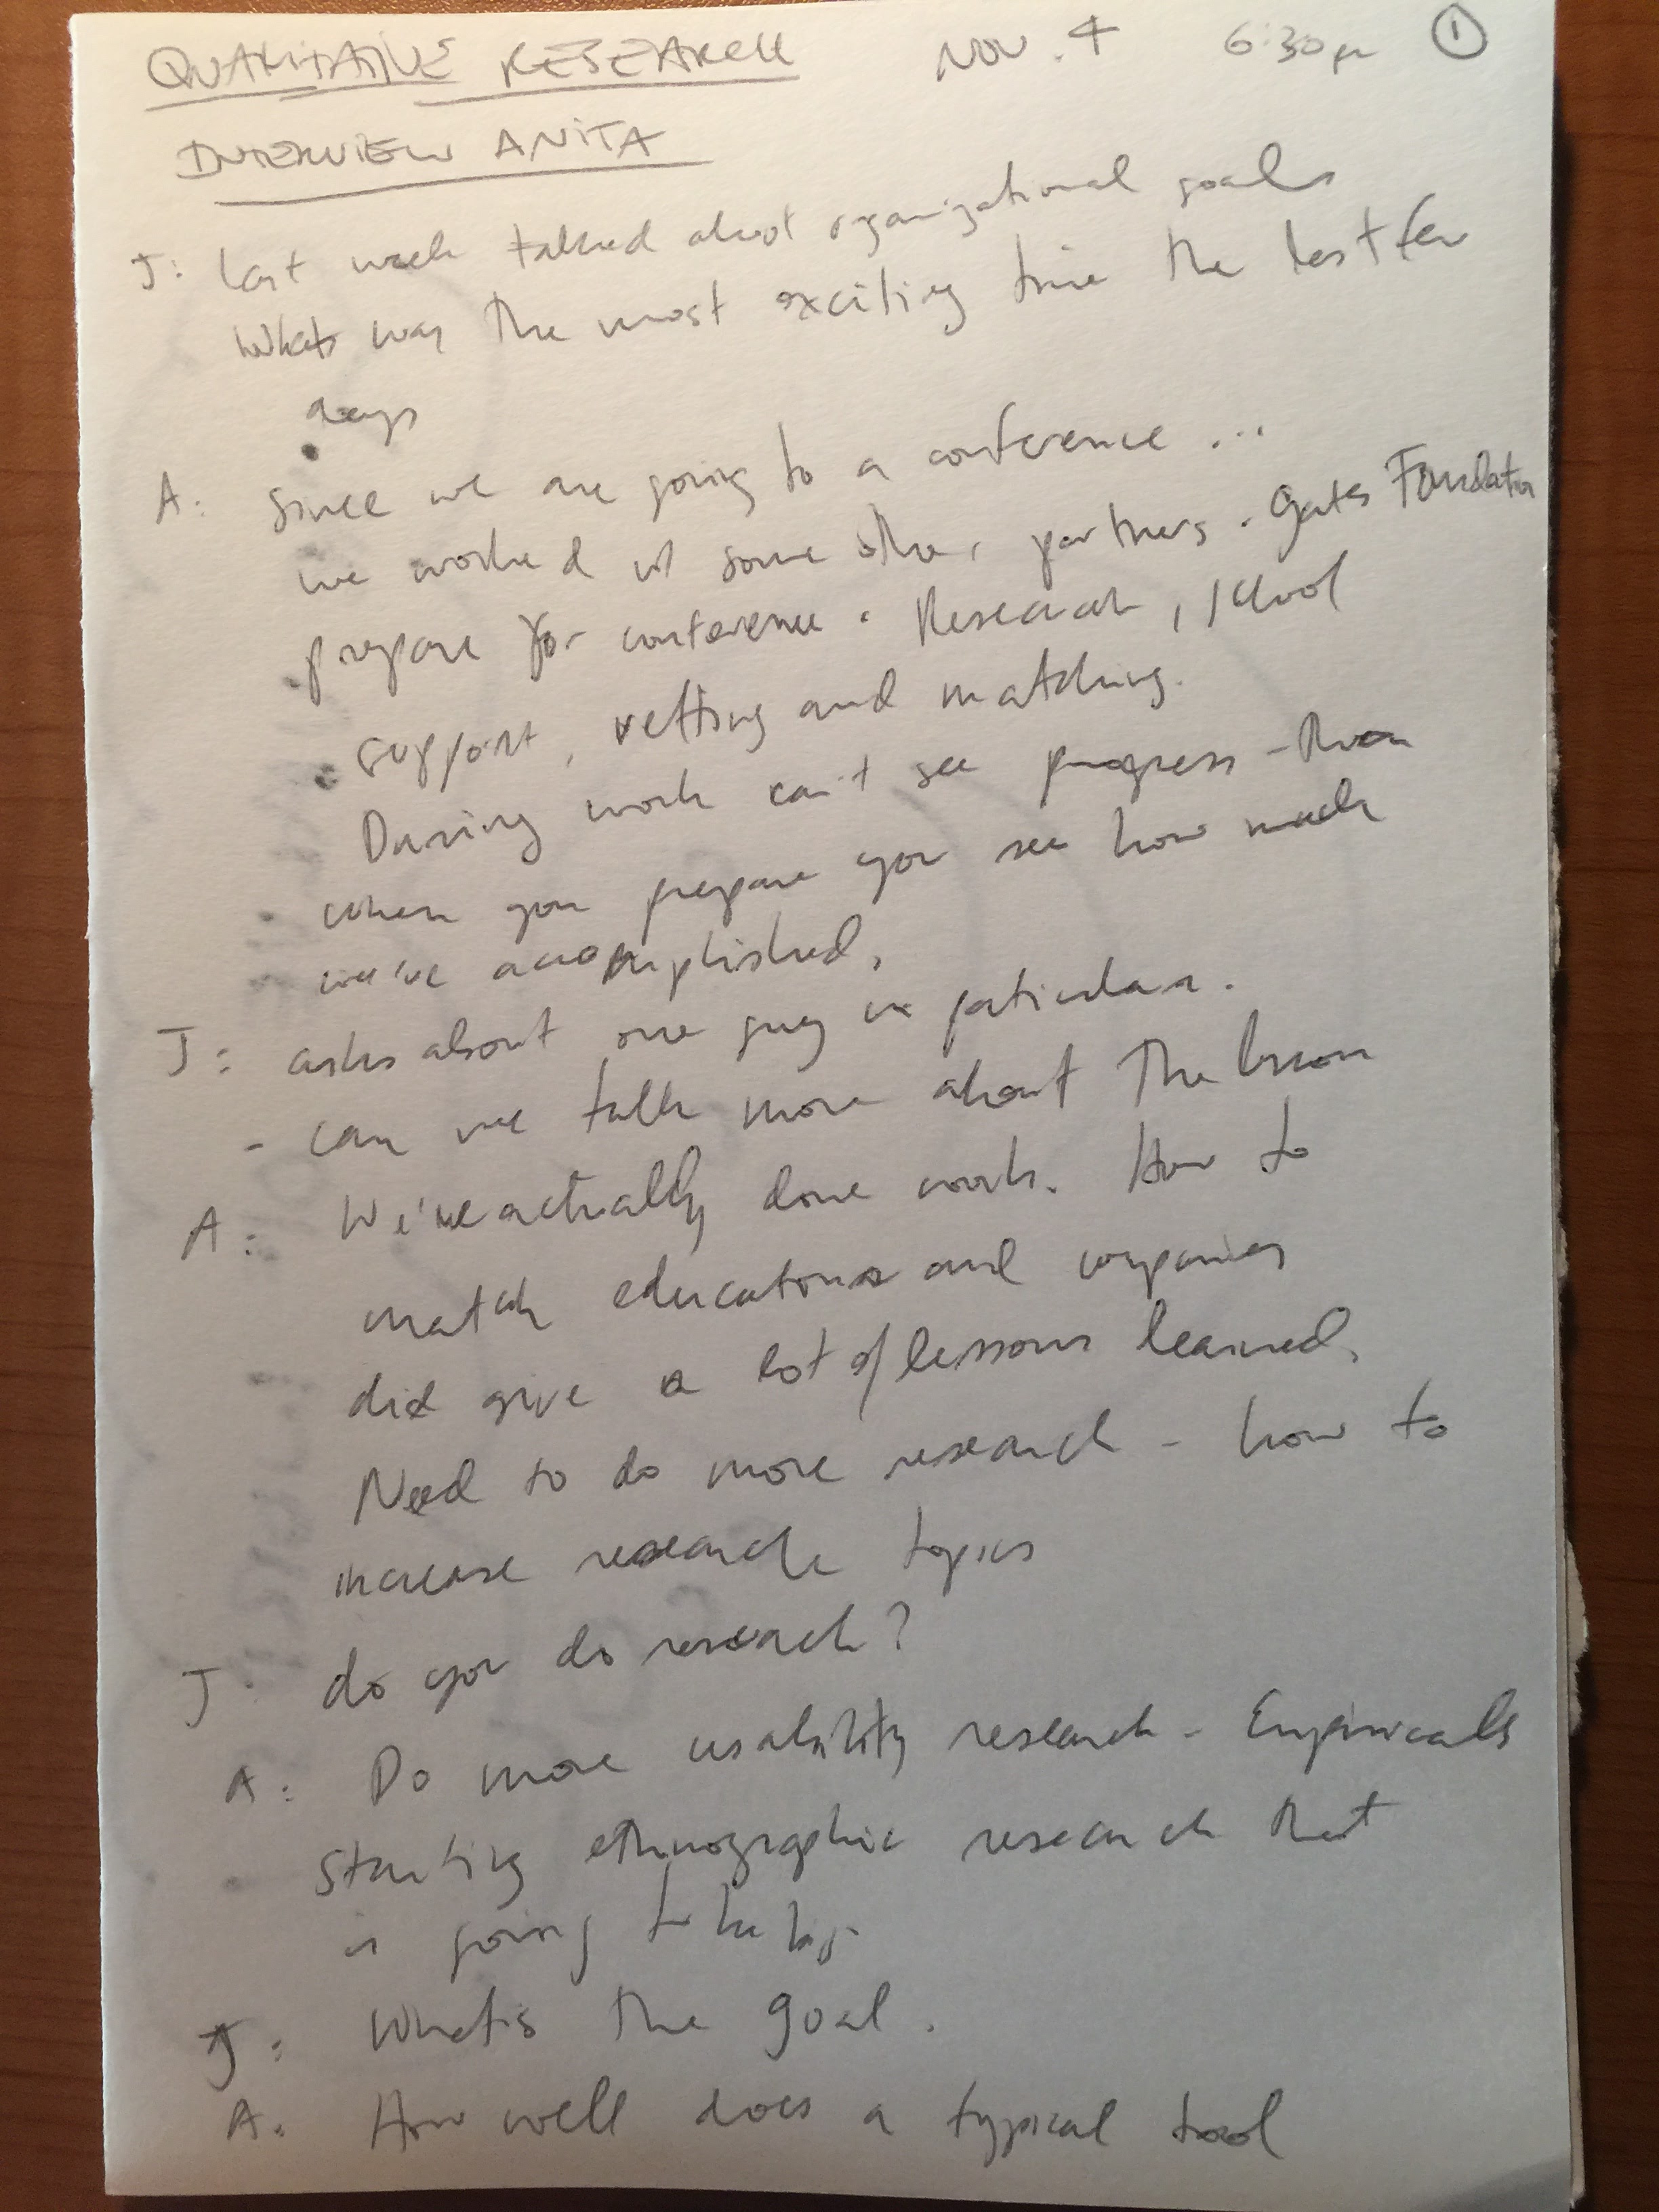 QUALITATIVE RESEARCH Nov. 4 6:30pm 1
INTERVIEW ANITA
J: Last week talked about organizational goals
Whats was the most exciting time the last few
days
A: Since we are going to a conference ...
we worked w/ some other partners. Gates Foundation
prepare for conference. Research, school
support, vetting and matching.
During work can't see progress - then
when you prepare you see how much
we've accomplished.
J: asks about one guy in particular.
- can we talk more about the
A: We've actually done work. How to
match educators and companies
did give a lot of lessons learned.
Need to do more research - how to
increase research topics
J: do you do research?
A: Do more usability research - Empiricals
Starting ethnographic research that
is going to be
J: What's the goal.
A: How well does a typical tool